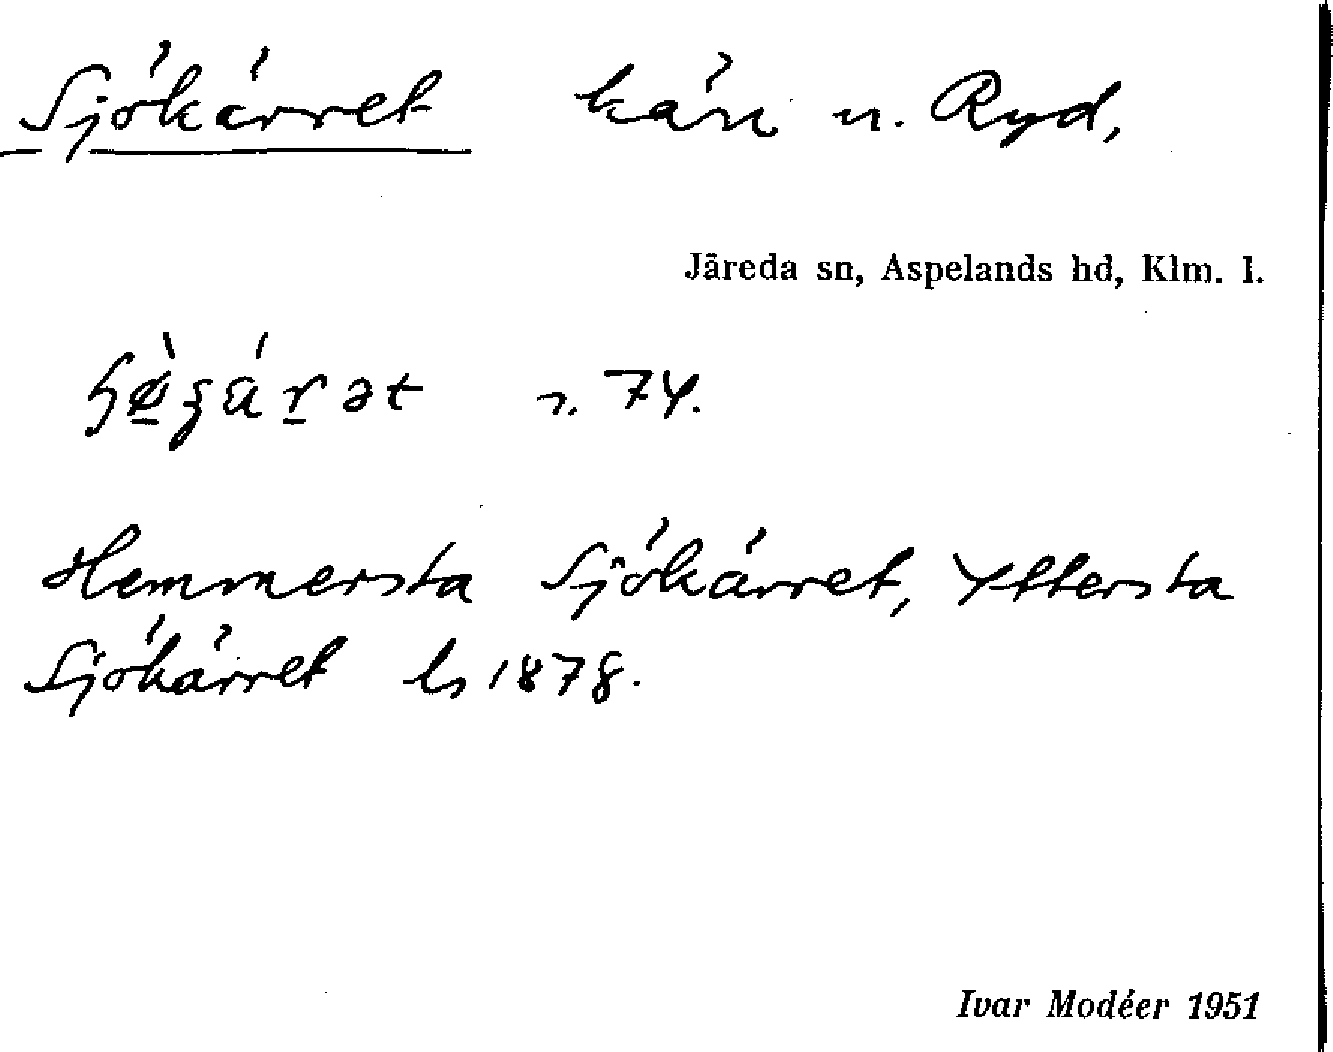 Sjökärret kärr n. Ryd,
Järeda sn, Aspelands hd, Klm. l.
74.
Hemmersta Sjökärret, Yttersta
Sjökärret ls 1878.
Ivar Modéer 1951